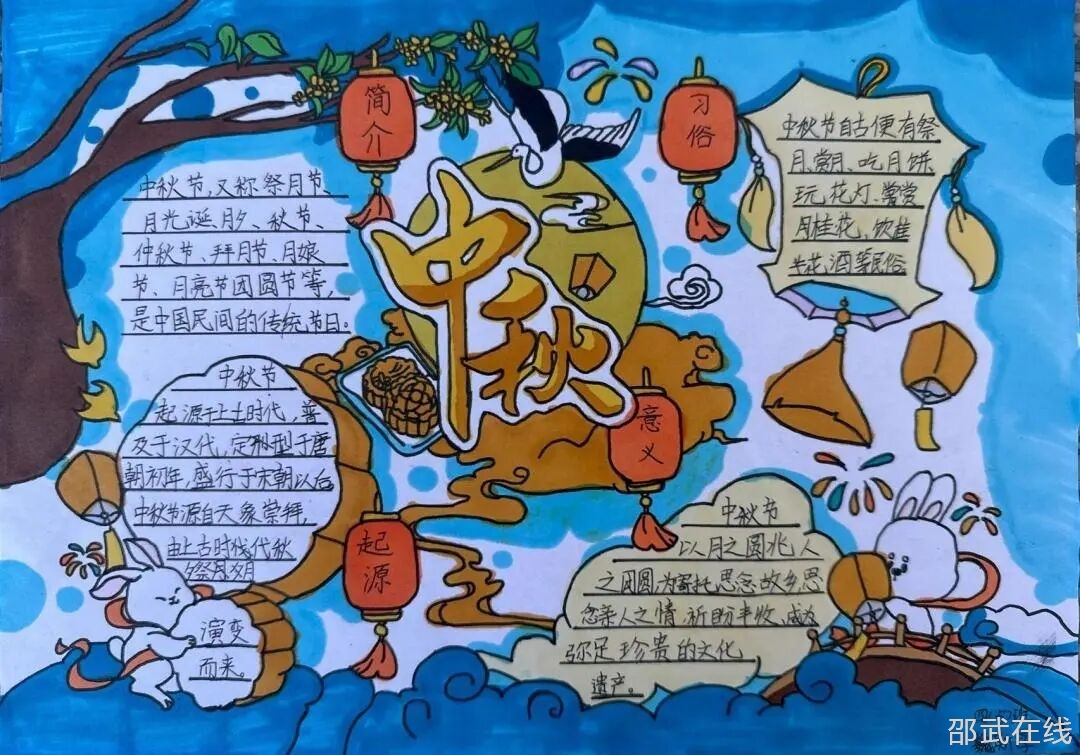 简介
中秋节,又称祭月节、
月光诞、月夕、秋节、
仲秋节、拜月节、月娘
节、月亮节团圆节等,
是中国民间的传统节日。
中秋
习俗
中秋节自古便有祭
月、赏月、吃月饼
玩花灯、赏
月桂花、饮桂
花、酒等民俗
起源
中秋节
起源于上土时代,普
及于汉代,定型于唐
朝初年,盛行于宋朝以后
中秋节源自天象崇拜,
由上古时代秋
祭月
演变
而来。
意义
中秋节
以月之圆兆人
之团圆,为寄托思念故乡,思
念亲人之情,祈盼丰收、成为
弥足珍贵的文化
遗产。
邵武在线